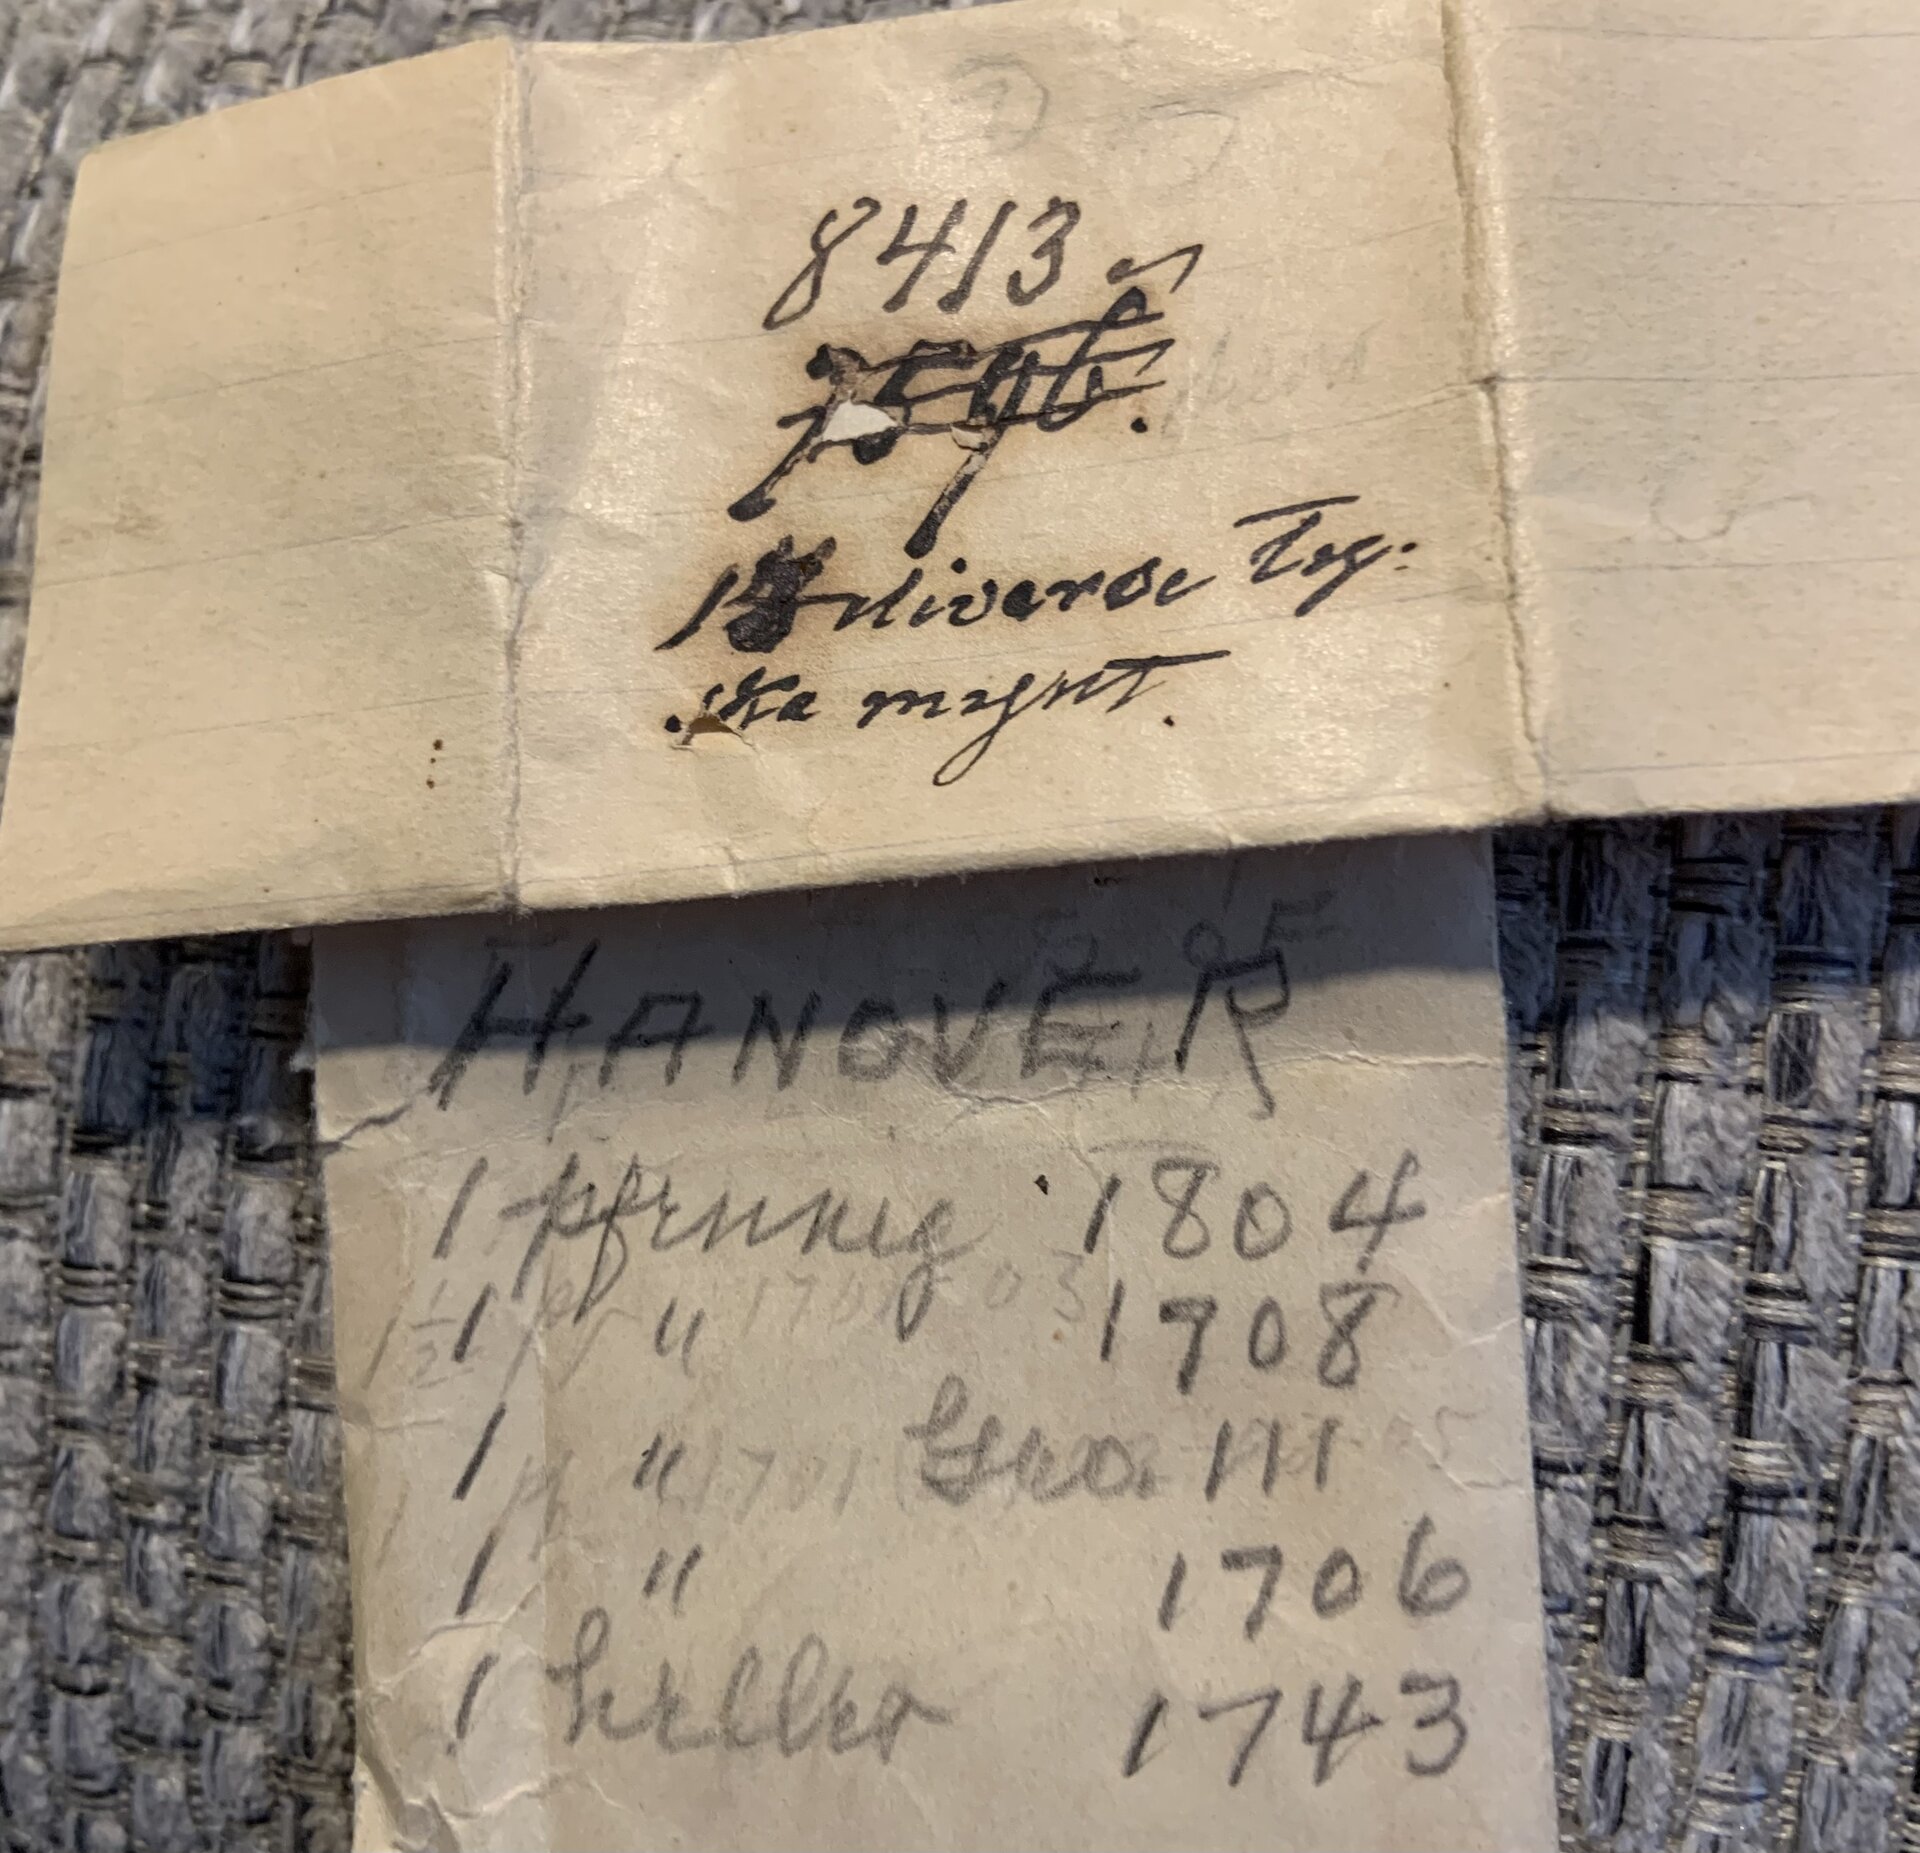 8413
diverse Tys-
ke mynt.
HANOVER
1 pfennig 1804
1 " 1708
1 " Geo. III
1 " 1706
1 heller 1743